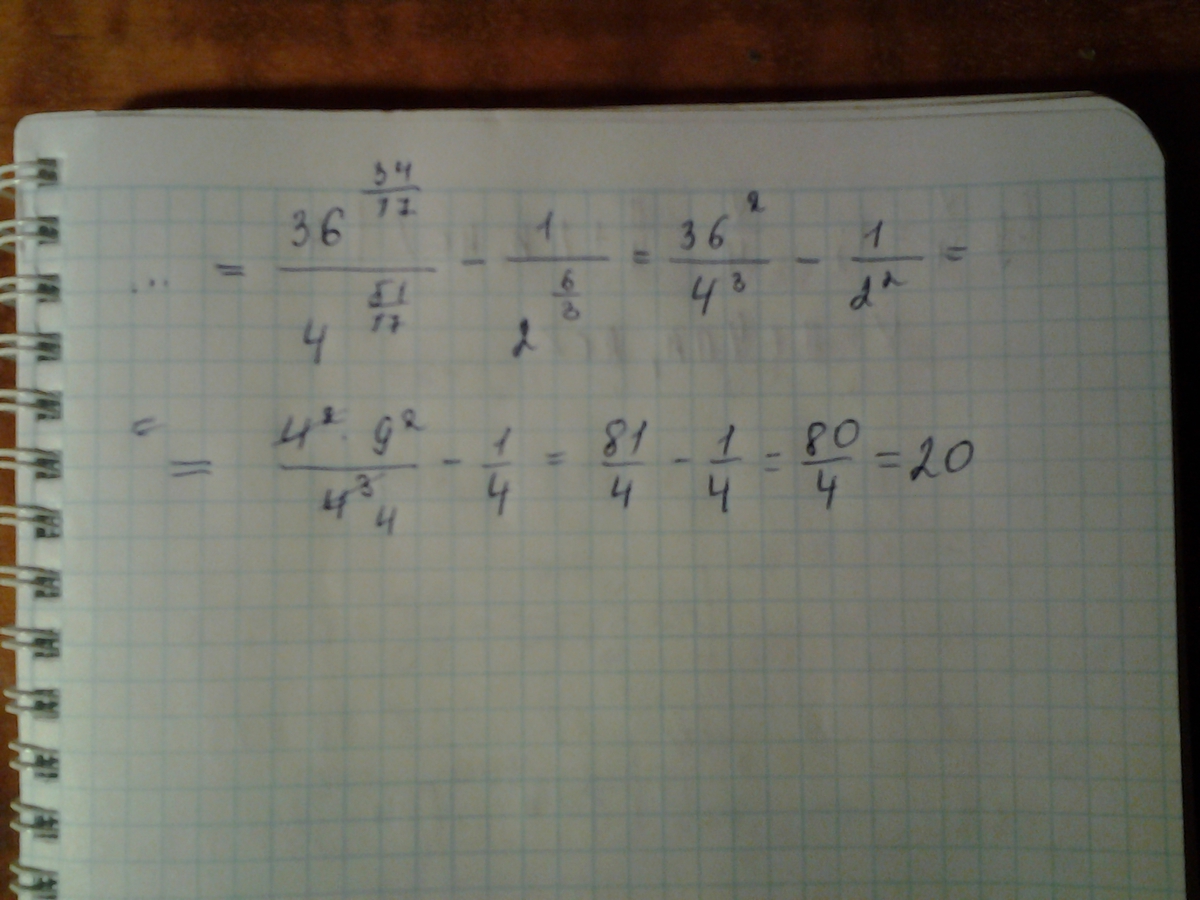 ... = 36^(34/17) / 4^(51/17) - 1 / 2^(6/3) = 36² / 4³ - 1 / 2² =
= = 4² · 9² / 4³ 4 - 1/4 = 81/4 - 1/4 = 80/4 = 20